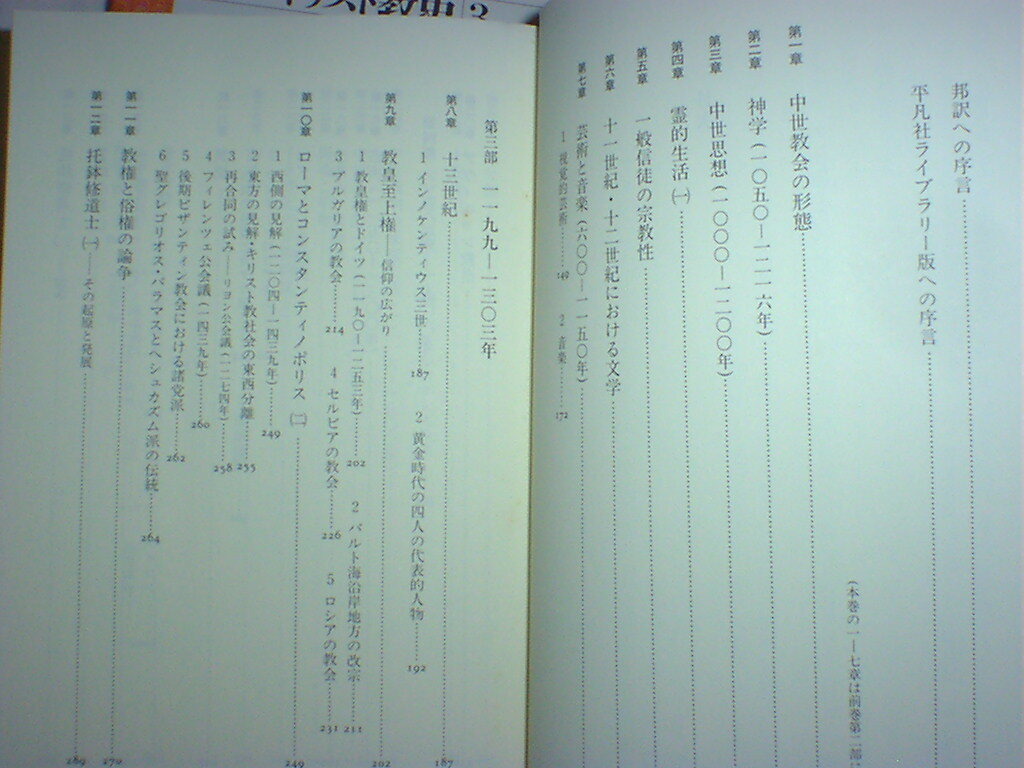 キリスト教史 3
邦訳への序言
平凡社ライブラリー版への序言
(本巻の一—七章は前巻第二部
第一章 中世教会の形態
第二章 神学(一〇五〇—一二一六年)
第三章 中世思想(一〇〇〇—一二〇〇年)
第四章 霊的生活㈠
第五章 一般信徒の宗教性
第六章 十一世紀・十二世紀における文学
第七章 芸術と音楽(六〇〇—一一五〇年)
1 視覚的芸術 149 2 音楽 172
第三部 一一九九—一三〇三年
第八章 十三世紀 187
1 インノケンティウス三世 187 2 黄金時代の四人の代表的人物 192
第九章 教皇至上権——信仰の広がり 202
1 教皇権とドイツ(一一九〇—一二五三年) 202 2 バルト海沿岸地方の改宗 211
3 ブルガリアの教会 214 4 セルビアの教会 226 5 ロシアの教会 231
第一〇章 ローマとコンスタンティノポリス㈡ 249
1 西側の見解(一二〇四—一四三九年) 249
2 東方の見解・キリスト教社会の東西分離 255
3 再合同の試み——リヨン公会議(一二七四年) 258
4 フィレンツェ公会議(一四三九年) 260
5 後期ビザンティン教会における諸党派 262
6 聖グレゴリオス・パラマスとヘシュカズム派の伝統 264
第一一章 教権と俗権の論争 270
第一二章 托鉢修道士㈠——その起原と発展 289